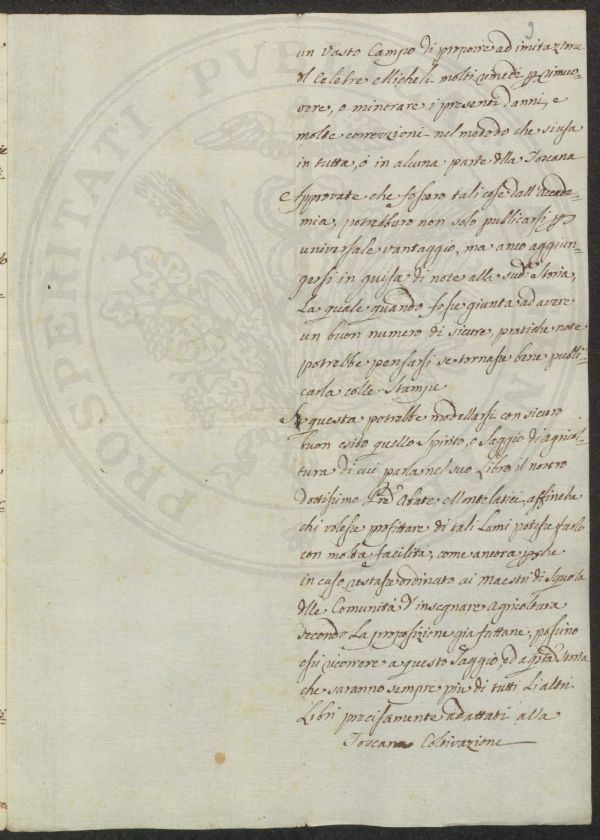 9
un vasto Campo di proporre ad imitazione
del Celebre Micheli molti rimedi pp rimuo-
vere, o minorare i presenti danni, e
molte correzzioni nel metodo che si usa
in tutta, o in alcuna parte della Toscana
Approvate che fossero tali cose dall'Accade-
mia, potrebbero non solo publicarsi pp
universale vantaggio, ma anco aggiun-
gersi in guisa di note alla sudª Storia,
La quale quando fosse giunta ad avere
un buon numero di sicure, pratiche note
potrebbe pensarsi se tornasse bene publi-
carla colle Stampe
Su questa potrebbe modellarsi con sicuro
buon esito quello Spirito, o Saggio d'agricol-
tura di cui parla nel suo Libro il nostro
dottissimo Pre Abate Montelatici, affinche
chi volesse profittare di tali Lumi potesse farlo
con molta facilità, come ancora pche
in caso restasse ordinato ai Maestri di Squola
delle Comunità d'insegnare Agricoltura
secondo La proposizione gia fattane, possino
essi ricorrere a questo Saggio, ed a qsta Storia
che saranno sempre più di tutti Li altri
Libri precisamente adattati alla
Toscana Coltivazione
PROSPERITATI PUB